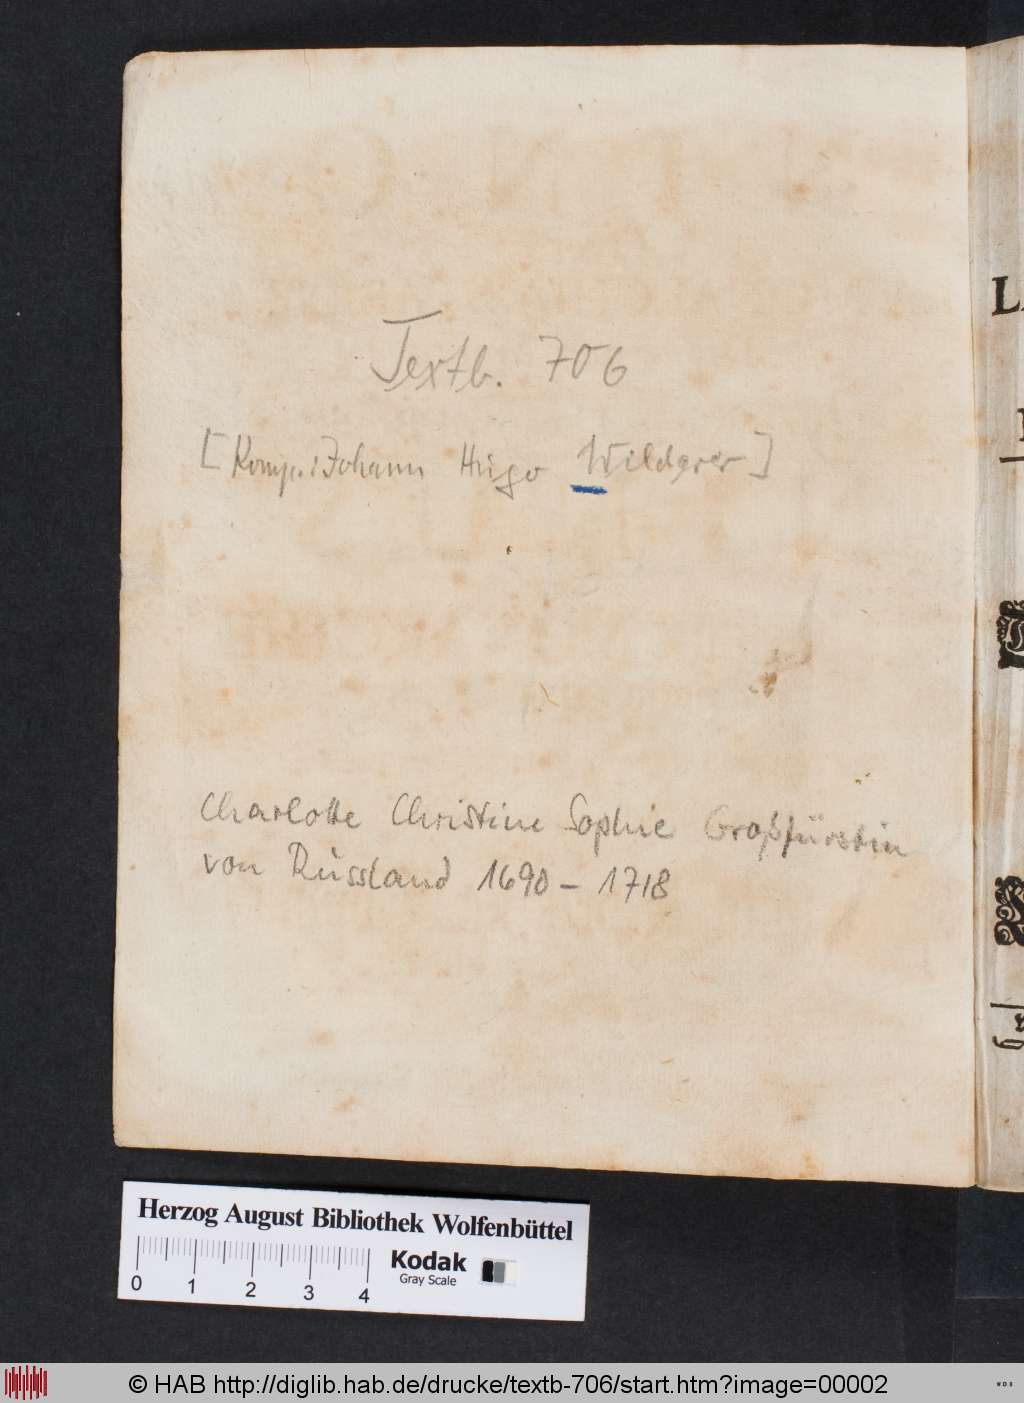 Textb. 706
[Komp.: Johann Hugo Wilderer]
Charlotte Christine Sophie Großfürstin
von Russland 1690 – 1718
Herzog August Bibliothek Wolfenbüttel
0 1 2 3 4
Kodak
Gray Scale
© HAB http://diglib.hab.de/drucke/textb-706/start.htm?image=00002